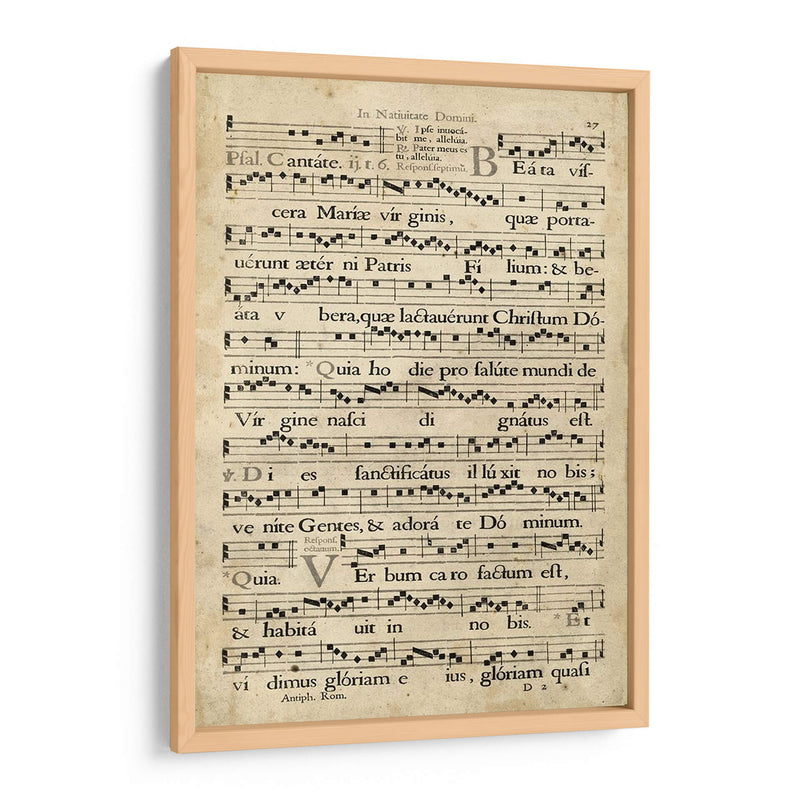 In Natiuitate Domini.
27
℣. Ipſe inuocá-
bit me, alleluia.
℟. Pater meus es
tu, alleluia.
Pſal. Cantáte. ij. t. 6. Reſponſ. ſeptimũ. BEáta viſ-
cera Mariæ vir ginis, quæ porta-
uérunt ætér ni Patris Fí lium: & be-
áta v bera, quæ lactauérunt Chriſtum Dó-
minum: *Quia ho die pro ſalúte mundi de
Vír gine naſci di gnátus eſt.
℣. Di es ſanctificátus il lú xit no bis;
ve níte Gentes, & adorá te Dó minum.
Reſponſ.
octauum.
*Quia. VEr bum ca ro factum eſt,
& habitá uit in no bis. *Et
ví dimus glóriam e ius, glóriam quaſi
Antiph. Rom. D 2